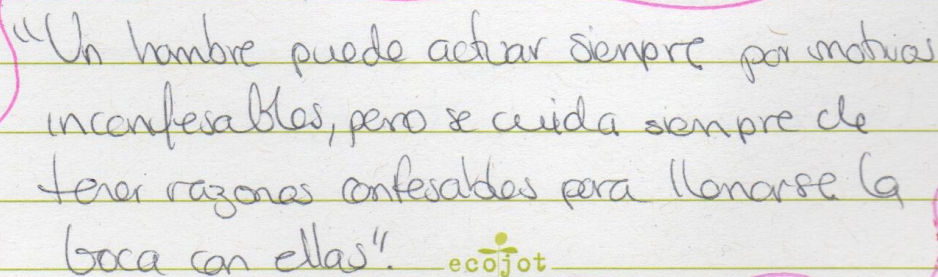 "Un hombre puede actuar siempre por motivos
inconfesables, pero se cuida siempre de
tener razones confesables para llenarse la
boca con ellas".
ecojot